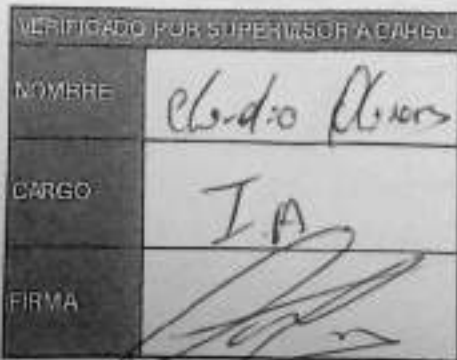 VERIFICADO POR SUPERVISOR A CARGO
NOMBRE Claudio
CARGO I.A
FIRMA